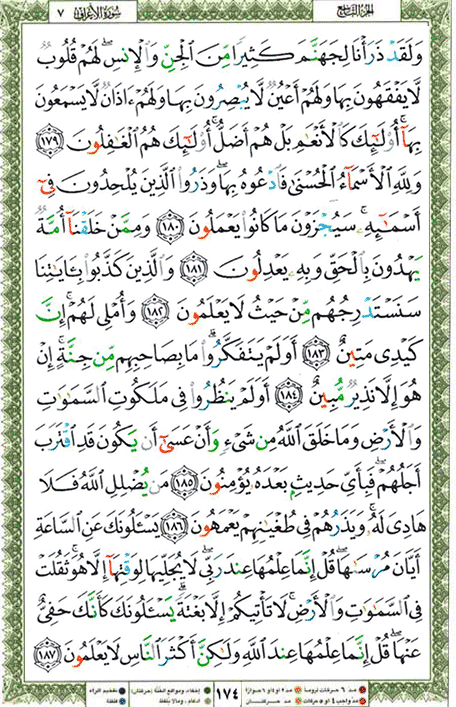 الجزء التاسع
سورة الأعراف
٧
وَلَقَدْ ذَرَأْنَا لِجَهَنَّمَ كَثِيرًا مِّنَ ٱلْجِنِّ وَٱلْإِنسِ ۖ لَهُمْ قُلُوبٌ
لَّا يَفْقَهُونَ بِهَا وَلَهُمْ أَعْيُنٌ لَّا يُبْصِرُونَ بِهَا وَلَهُمْ ءَاذَانٌ لَّا يَسْمَعُونَ
بِهَآ ۚ أُو۟لَـٰٓئِكَ كَٱلْأَنْعَـٰمِ بَلْ هُمْ أَضَلُّ ۚ أُو۟لَـٰٓئِكَ هُمُ ٱلْغَـٰفِلُونَ ١٧٩
وَلِلَّهِ ٱلْأَسْمَآءُ ٱلْحُسْنَىٰ فَٱدْعُوهُ بِهَا ۖ وَذَرُوا۟ ٱلَّذِينَ يُلْحِدُونَ فِىٓ
أَسْمَـٰٓئِهِۦ ۚ سَيُجْزَوْنَ مَا كَانُوا۟ يَعْمَلُونَ ١٨٠ وَمِمَّنْ خَلَقْنَآ أُمَّةٌ
يَهْدُونَ بِٱلْحَقِّ وَبِهِۦ يَعْدِلُونَ ١٨١ وَٱلَّذِينَ كَذَّبُوا۟ بِـَٔايَـٰتِنَا
سَنَسْتَدْرِجُهُم مِّنْ حَيْثُ لَا يَعْلَمُونَ ١٨٢ وَأُمْلِى لَهُمْ ۚ إِنَّ
كَيْدِى مَتِينٌ ١٨٣ أَوَلَمْ يَتَفَكَّرُوا۟ ۗ مَا بِصَاحِبِهِم مِّن جِنَّةٍ ۚ إِنْ
هُوَ إِلَّا نَذِيرٌ مُّبِينٌ ١٨٤ أَوَلَمْ يَنظُرُوا۟ فِى مَلَكُوتِ ٱلسَّمَـٰوَٰتِ
وَٱلْأَرْضِ وَمَا خَلَقَ ٱللَّهُ مِن شَىْءٍ وَأَنْ عَسَىٰٓ أَن يَكُونَ قَدِ ٱقْتَرَبَ
أَجَلُهُمْ ۖ فَبِأَىِّ حَدِيثٍۭ بَعْدَهُۥ يُؤْمِنُونَ ١٨٥ مَن يُضْلِلِ ٱللَّهُ فَلَا
هَادِىَ لَهُۥ ۚ وَيَذَرُهُمْ فِى طُغْيَـٰنِهِمْ يَعْمَهُونَ ١٨٦ يَسْـَٔلُونَكَ عَنِ ٱلسَّاعَةِ
أَيَّانَ مُرْسَىٰهَا ۖ قُلْ إِنَّمَا عِلْمُهَا عِندَ رَبِّى ۖ لَا يُجَلِّيهَا لِوَقْتِهَآ إِلَّا هُوَ ۚ ثَقُلَتْ
فِى ٱلسَّمَـٰوَٰتِ وَٱلْأَرْضِ ۚ لَا تَأْتِيكُمْ إِلَّا بَغْتَةً ۗ يَسْـَٔلُونَكَ كَأَنَّكَ حَفِىٌّ
عَنْهَا ۖ قُلْ إِنَّمَا عِلْمُهَا عِندَ ٱللَّهِ وَلَـٰكِنَّ أَكْثَرَ ٱلنَّاسِ لَا يَعْلَمُونَ ١٨٧
مدّ ٦ حركات لزوماً مدّ ٢ او ٤ او ٦ جوازاً
مدّ واجب ٤ او ٥ حركات مدّ حركتان
١٧٤
إخفاء، ومواقع الغنّة (حركتان) تفخيم الراء
ادغام، وما لا يلفظ قلقلة